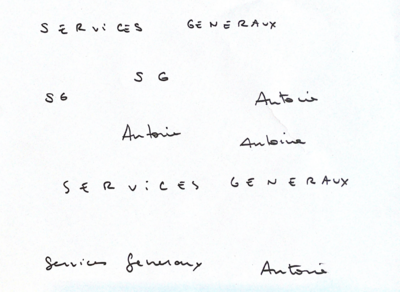 SERViCES GENERAUX
SG
SG Antoine
Antoine Antoine
SERViCES GENERAUX
Services Generaux Antoine